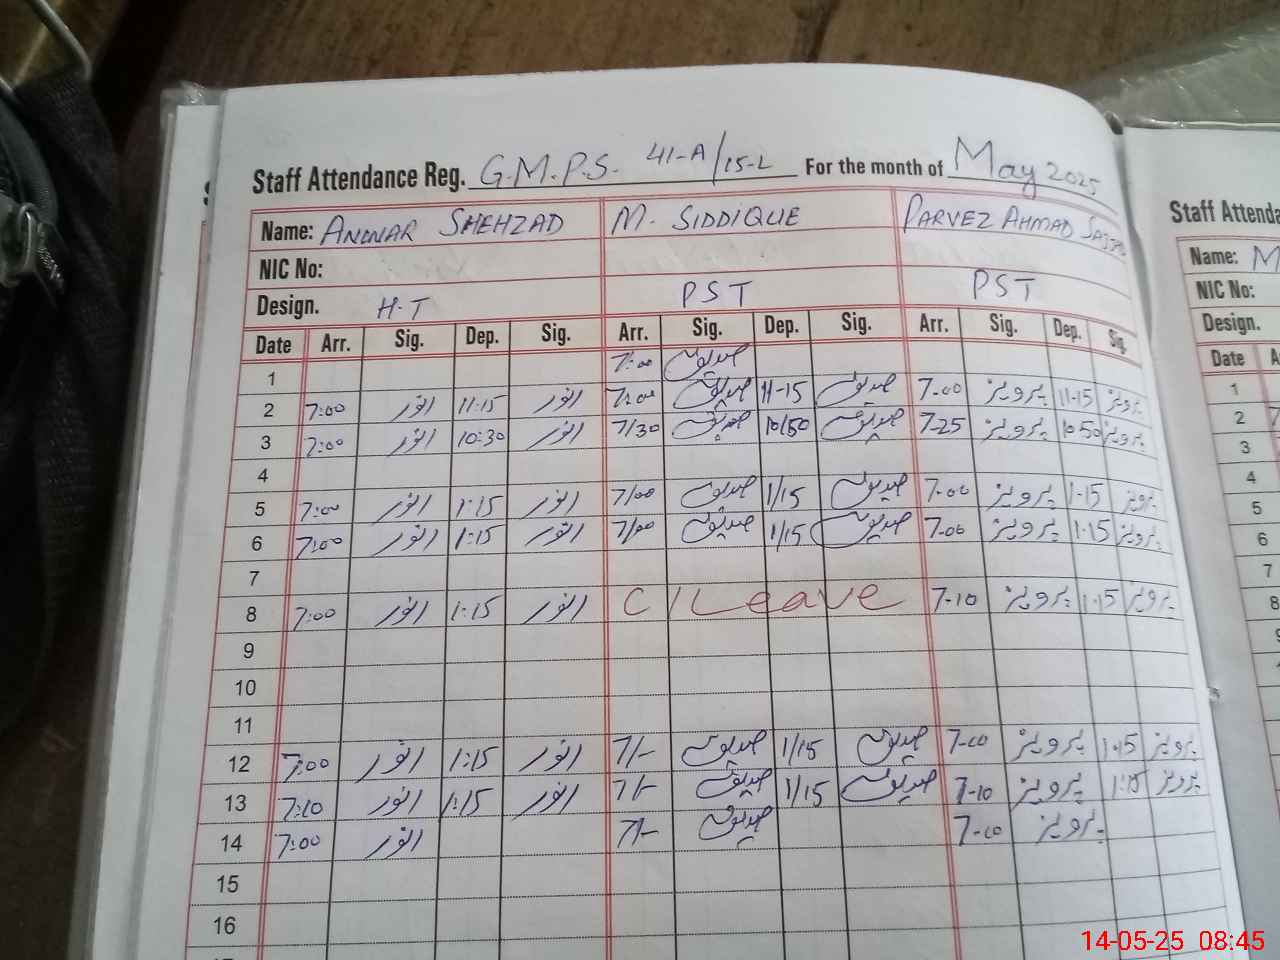 Staff Attendance Reg. G.M.P.S. 41-A/15-L For the month of May 2025
Name: ANWAR SHEHZAD M. SIDDIQUE PARVEZ AHMAD
NIC No:
Design. H.T PST PST
Date Arr. Sig. Dep. Sig. Arr. Sig. Dep. Sig. Arr. Sig. Dep. Sig.
1 7:00 صدیق
2 7:00 انور 11:15 انور 7:00 صدیق 11-15 صدیق 7-00 پرویز 11-15 پرویز
3 7:00 انور 10:30 انور 7/30 صدیق 10/50 صدیق 7-25 پرویز 10-50 پرویز
4
5 7:00 انور 1:15 انور 7/00 صدیق 1/15 صدیق 7-00 پرویز 1-15 پرویز
6 7:00 انور 1:15 انور 7/00 صدیق 1/15 صدیق 7-00 پرویز 1-15 پرویز
7
8 7:00 انور 1:15 انور C/Leave 7-10 پرویز 1-15 پرویز
9
10
11
12 7:00 انور 1:15 انور 7/- صدیق 1/15 صدیق 7-00 پرویز 1-15 پرویز
13 7:10 انور 1:15 انور 7/- صدیق 1/15 صدیق 7-10 پرویز 1:15 پرویز
14 7:00 انور 7/- صدیق 7-00 پرویز
15
16
Staff
Name: M
NIC No:
Design.
Date
1
2
3
4
5
6
7
8
14-05-25 08:45